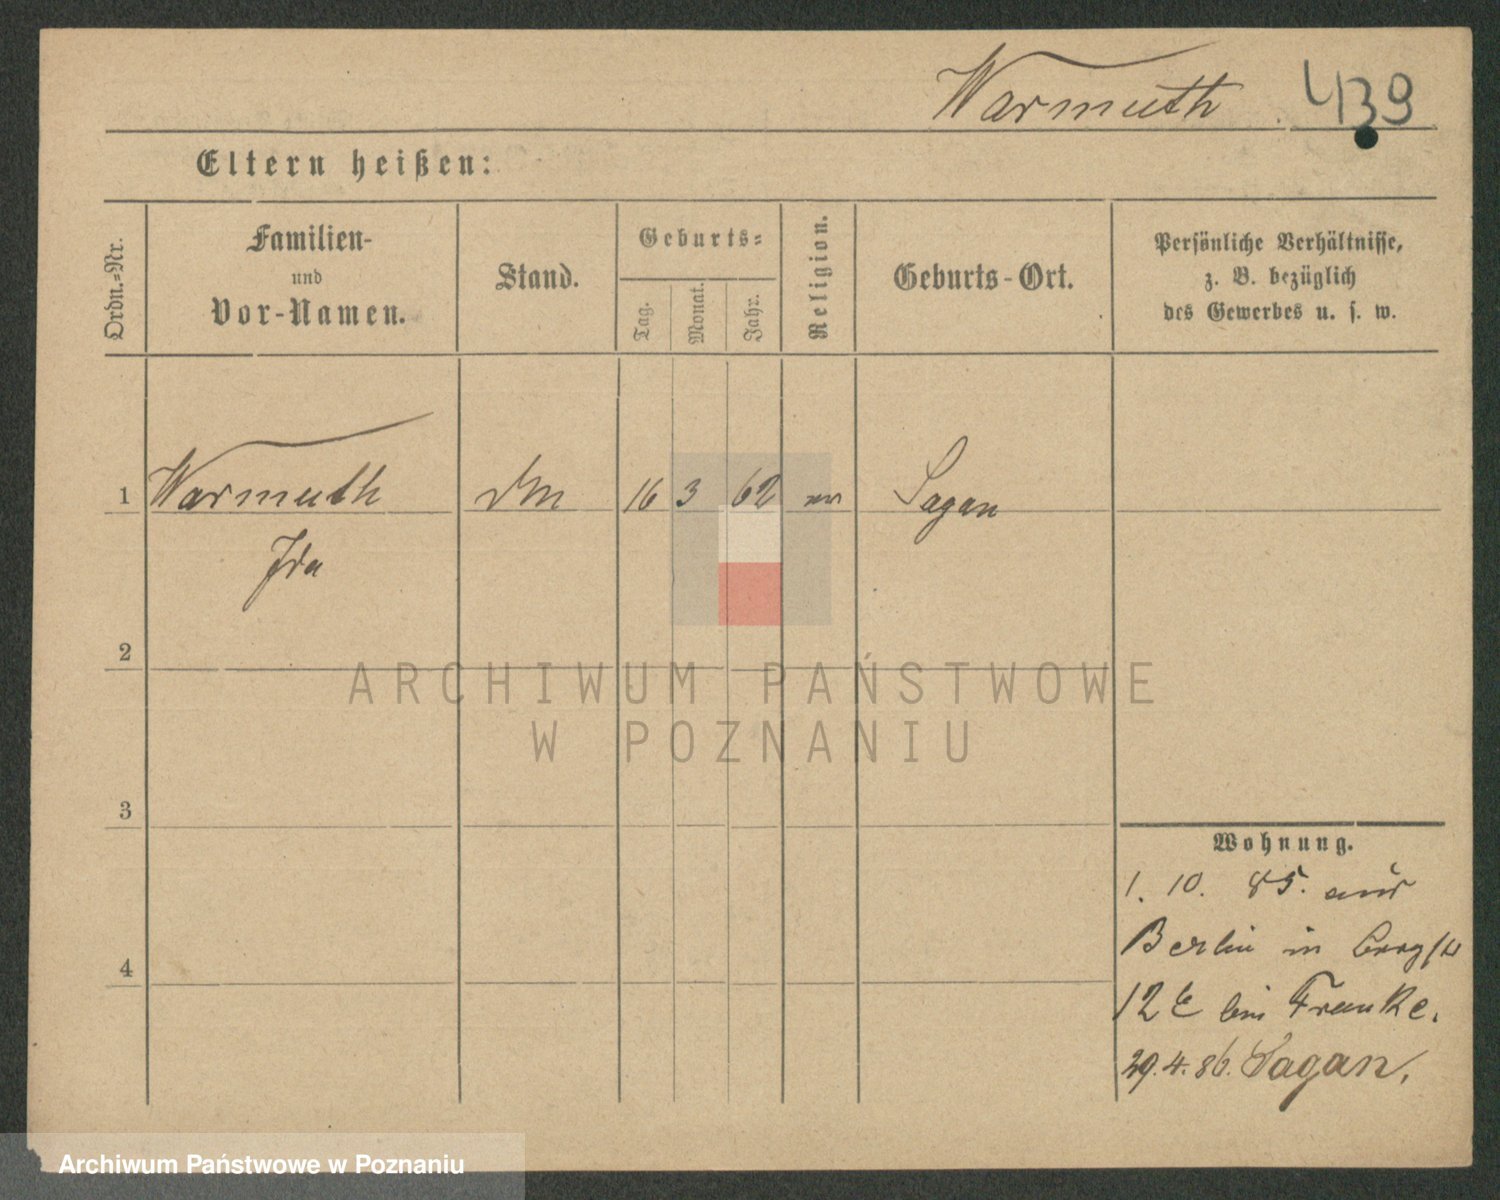 Warmuth 439
Eltern heißen:
Ordn.-Nr.
Familien-
und
Vor-Namen.
Stand.
Geburts-
Tag.
Monat.
Jahr.
Religion.
Geburts-Ort.
Persönliche Verhältnisse,
z. B. bezüglich
des Gewerbes u. s. w.
1 Warmuth 16 3 62 ev Sagan
Ida
2
3
4
Wohnung.
1. 10. 85. aus
Berlin in Bergstr
12 E bei Franke.
29.4.86. Sagan.
ARCHIWUM PAŃSTWOWE
W POZNANIU
Archiwum Państwowe w Poznaniu